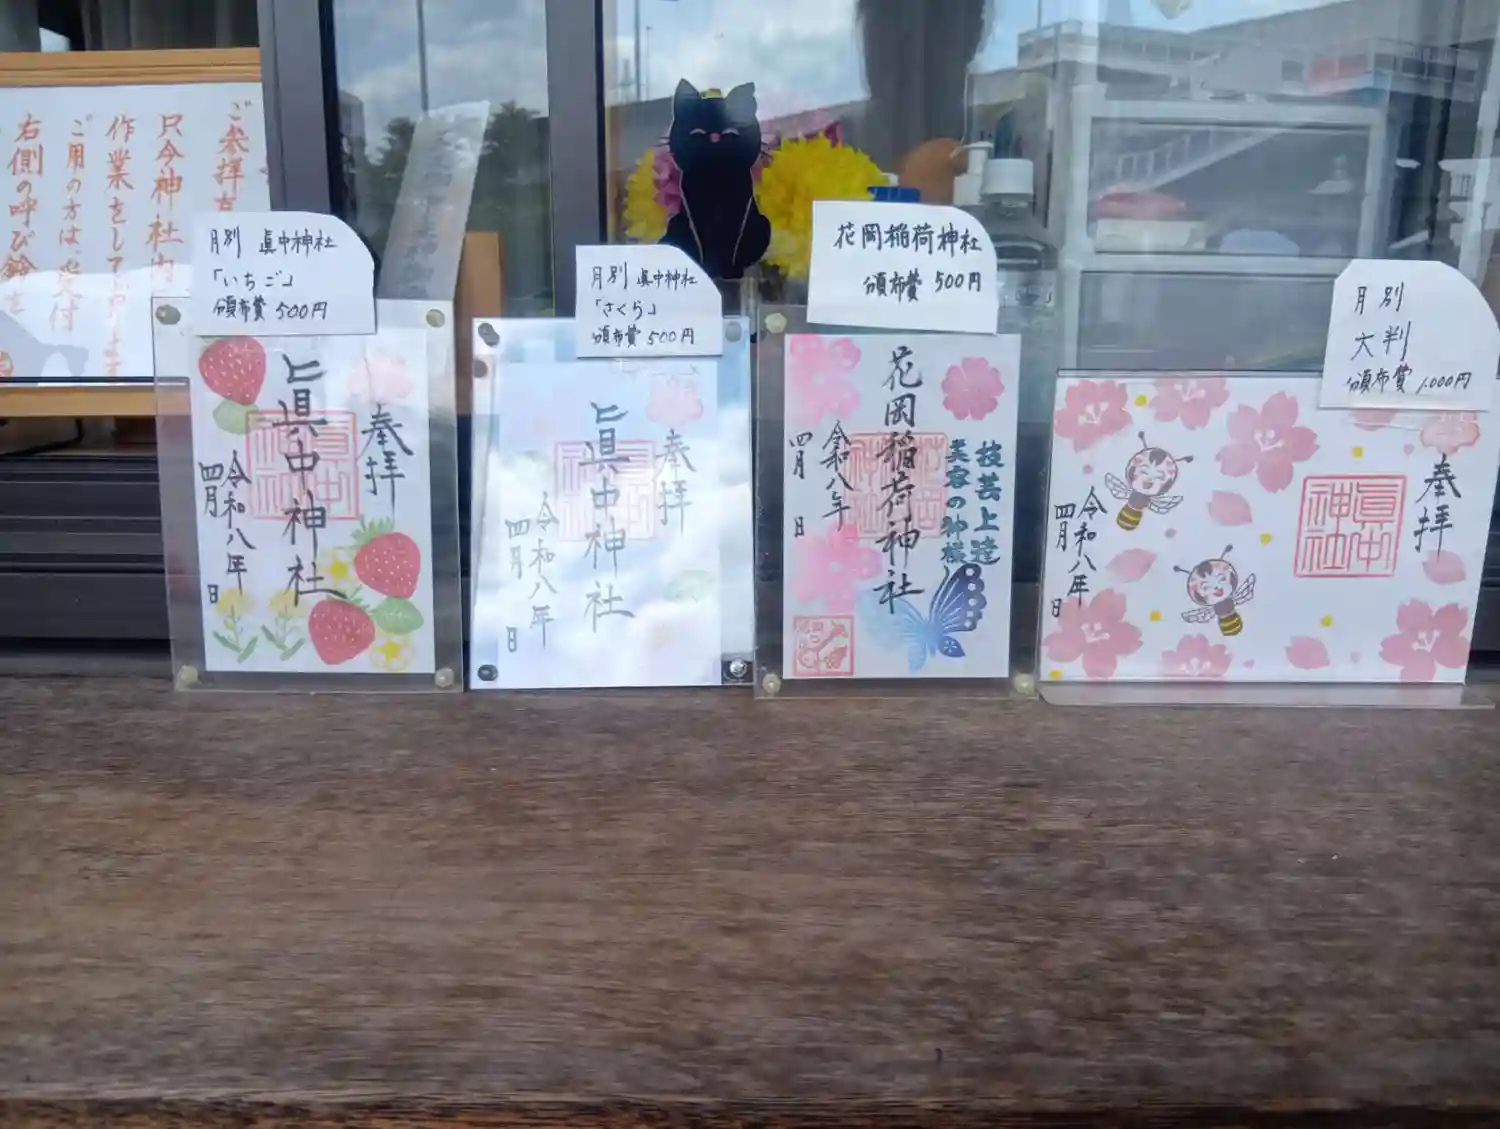 ご参拝
只今神社内
作業をしており
ご用の方は、受付
右側の呼び鈴を
月別 眞中神社
「いちご」
頒布費 500円
奉拝
眞中神社
眞中
神社
令和八年
四月 日
月別 眞中神社
「さくら」
頒布費 500円
奉拝
眞中神社
眞中
神社
令和八年
四月 日
花岡稲荷神社
頒布費 500円
技芸上達
美容の神様
花岡稲荷神社
花岡
稲荷
神社
令和八年
四月 日
月別
大判
頒布費 1,000円
奉拝
眞中
神社
令和八年
四月 日